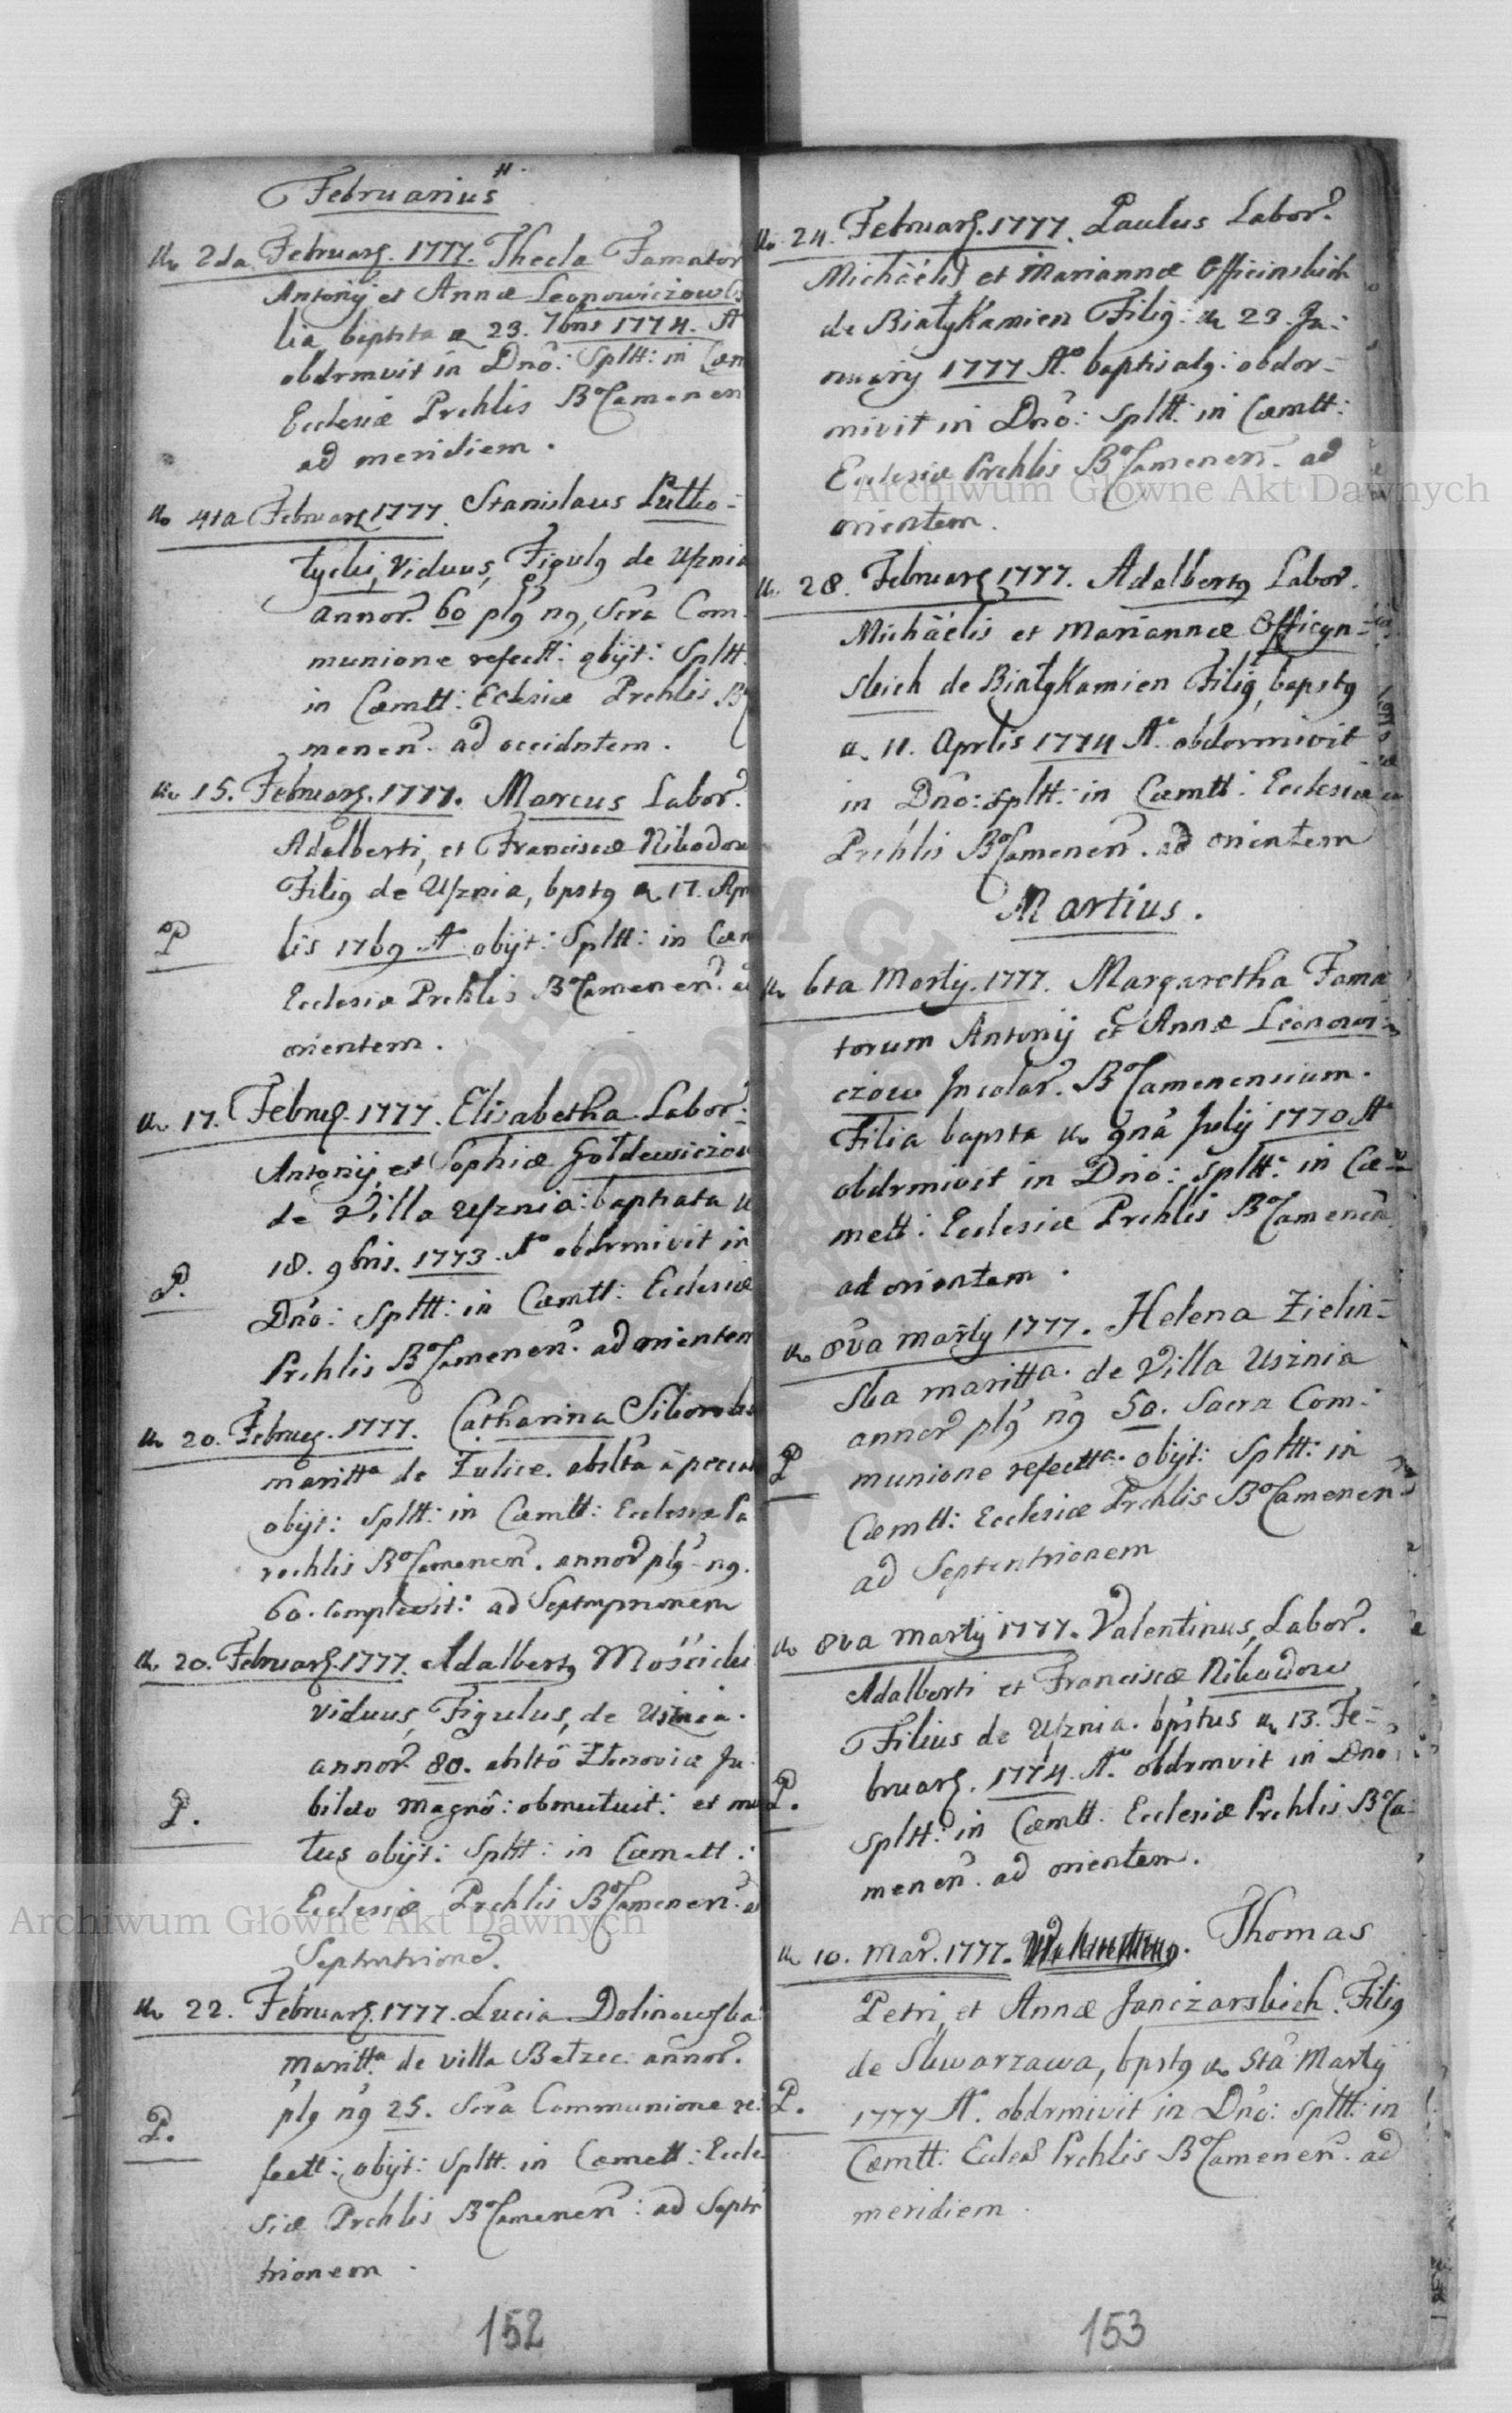 Februarius
2da Februarȝ. 1777. Thecla Famator
Antonij et Annæ Leonowiczow
lia baptsta 23. 7bris 1774. Aº
obdrmvit in Dnõ: Spltt: in Cæm
Ecclesiæ Prchlis BºCamenen
ad meridiem.
4ta Februarȝ 1777. Stanislaus Putko-
tycki, Viduus, Figulg de Uſznia
annor. 60 plg ng, Scra Com
munione refectt: obijt: Spltt.
in Cæmtt: Eclesiæ Prchlis B
menen. ad occidntem.
15. Februarȝ. 1777. Marcus Labor.
Adalberti, et Franciscæ Nikodow
Filig de Uſznia, bpstg 17. Apr
P lis 1769 Aº obijt: Spltt: in Cæm
Ecclesiæ Prchlis BºCamenen. ad
orientem.
17. Februȝ. 1777. Elisabetha Labor.
Antonij, et Sophiæ Gołdewiczow
de Villa Uſznia: baptsata
18. 9bris. 1773. Aº obdrmivit in
P. Dnõ: Spltt: in Cæmtt: Eclesiæ
Prchlis BºCamenen. ad orientem
20. Februȝ. 1777. Catharina Sikorska
maritta de Zulice. abslta à peccat
obijt: Spltt: in Cæmtt: Ecclesiæ Pa
rochlis BºCamenen. annor plg ng.
60. complevit: ad Septmprionem
20. Februarȝ. 1777. Adalbertg Mościcki
Viduus, Figulus, de Usznia.
annor. 80. abslto Złoczoviæ Ju
P. bileo magno: obmutuit: et mu
tus obijt: Spltt: in Cæmett:
Ecclesiæ Prchlis BºCamenen. ad
Septntrione.
22. Februarȝ. 1777. Lucia Dolinowſka
Maritta de villa Bełzec annor.
plg ng 25. Scra Communione re
P. fectt: obijt: Spltt. in Cæmett: Eccle
siæ Prchlis BºCamenen: ad Septn
trionem.
152
24. Februarȝ. 1777. Paulus Labor.
Michäelis et Mariannæ Officinskich
de BiałyKamien Filig: 23. Ja-
nuarij 1777 Aº. baptisatg. obdor-
mivit in Dnõ: Spltt: in Cæmtt:
Ecclesiæ Prchlis BºCamenen. ad
orientem.
28. Februarȝ 1777. Adalbertg Labor.
Michäelis et Mariannæ Officyn-
skich de BiałyKamien Filig, bapstg
11. Aprlis 1774 Aº. obdormivit
in Dnõ: spltt: in Cæmtt: Ecclesiæ
Prchlis BºCamenen. ad orientem
Martius.
6ta Martij. 1777. Margaretha Fama
torum Antonij et Annæ Leonowi-
czow Incolar. BºCamenensium.
Filia bapsta 9na Julij 1770 Aº
obdrmivit in Dno: spltt: in Cæ-
mett: Ecclesiæ Prchlis BºCamenen
ad orientem.
8va Martij 1777. Helena Zielin-
ska maritta. de Villa Usznia
annor plg ng 50. Sacra Com-
P munione refectta. obijt: Spltt: in
Cæmtt: Ecclesiæ Prchlis BºCamenen
ad Septentrionem
8va Martij 1777. Valentinus, Labor.
Adalberti et Franciscæ Nikodow
Filius de Uſznia. bpstus 13. Fe-
P. bruarȝ. 1774. Aº. obdrmvit in Dno
spltt: in Cæmtt. Ecclesiæ Prchlis. BºCa-
menen. ad orientem.
10. Mar. 1777. Thomas
Petri, et Annæ Janczarskich. Filig
de Skwarzawa, bpstg 5ta Martij
P. 1777 Aº. obdrmivit in Dno: spltt: in
Cæmtt: Eccles Prchlis BºCamenen. ad
meridiem.
153
Archiwum Główne Akt Dawnych
Archiwum Główne Akt Dawnych